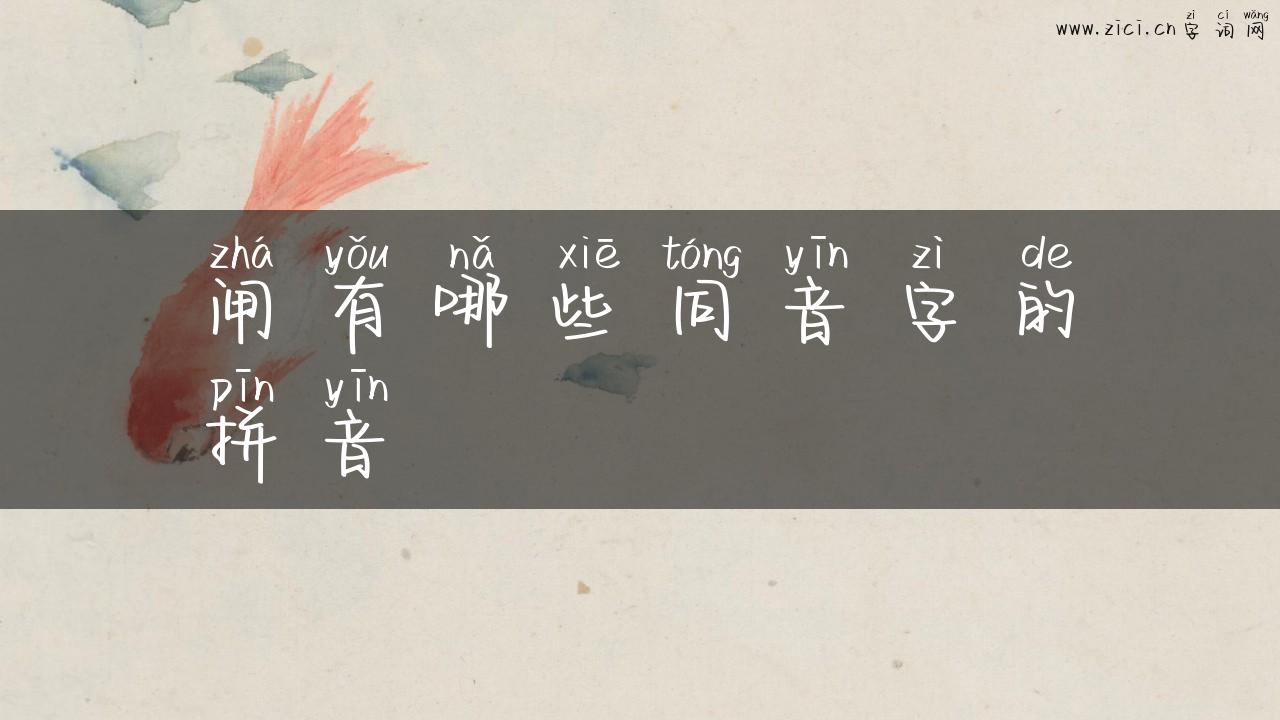 zì cí wǎng
www.zici.cn 字词网
zhá yǒu nǎ xiē tóng yīn zì de
闸有哪些同音字的
pīn yīn
拼音